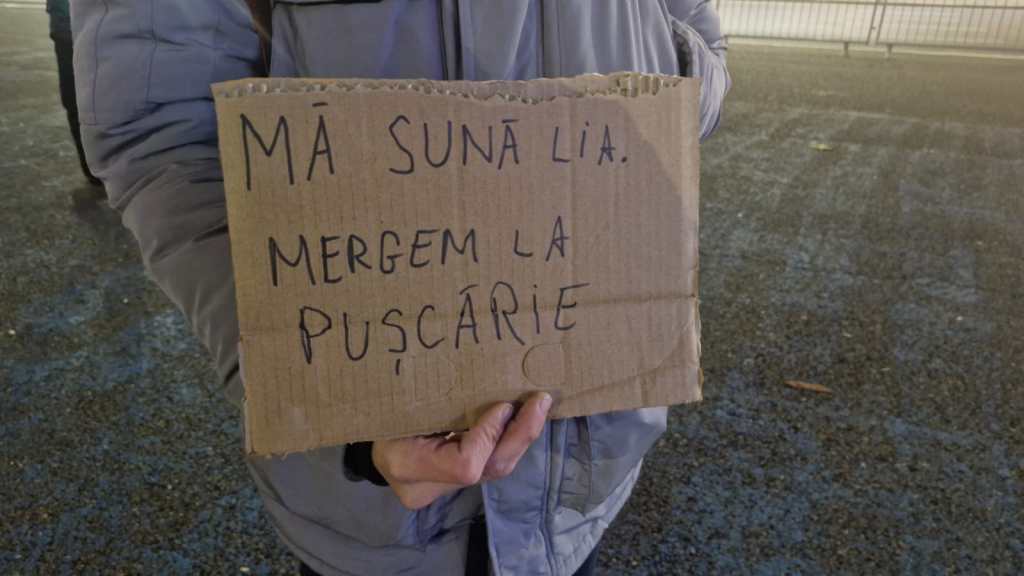 MĂ SUNĂ LiA.
MERGEM LA
PUȘCĂRiE